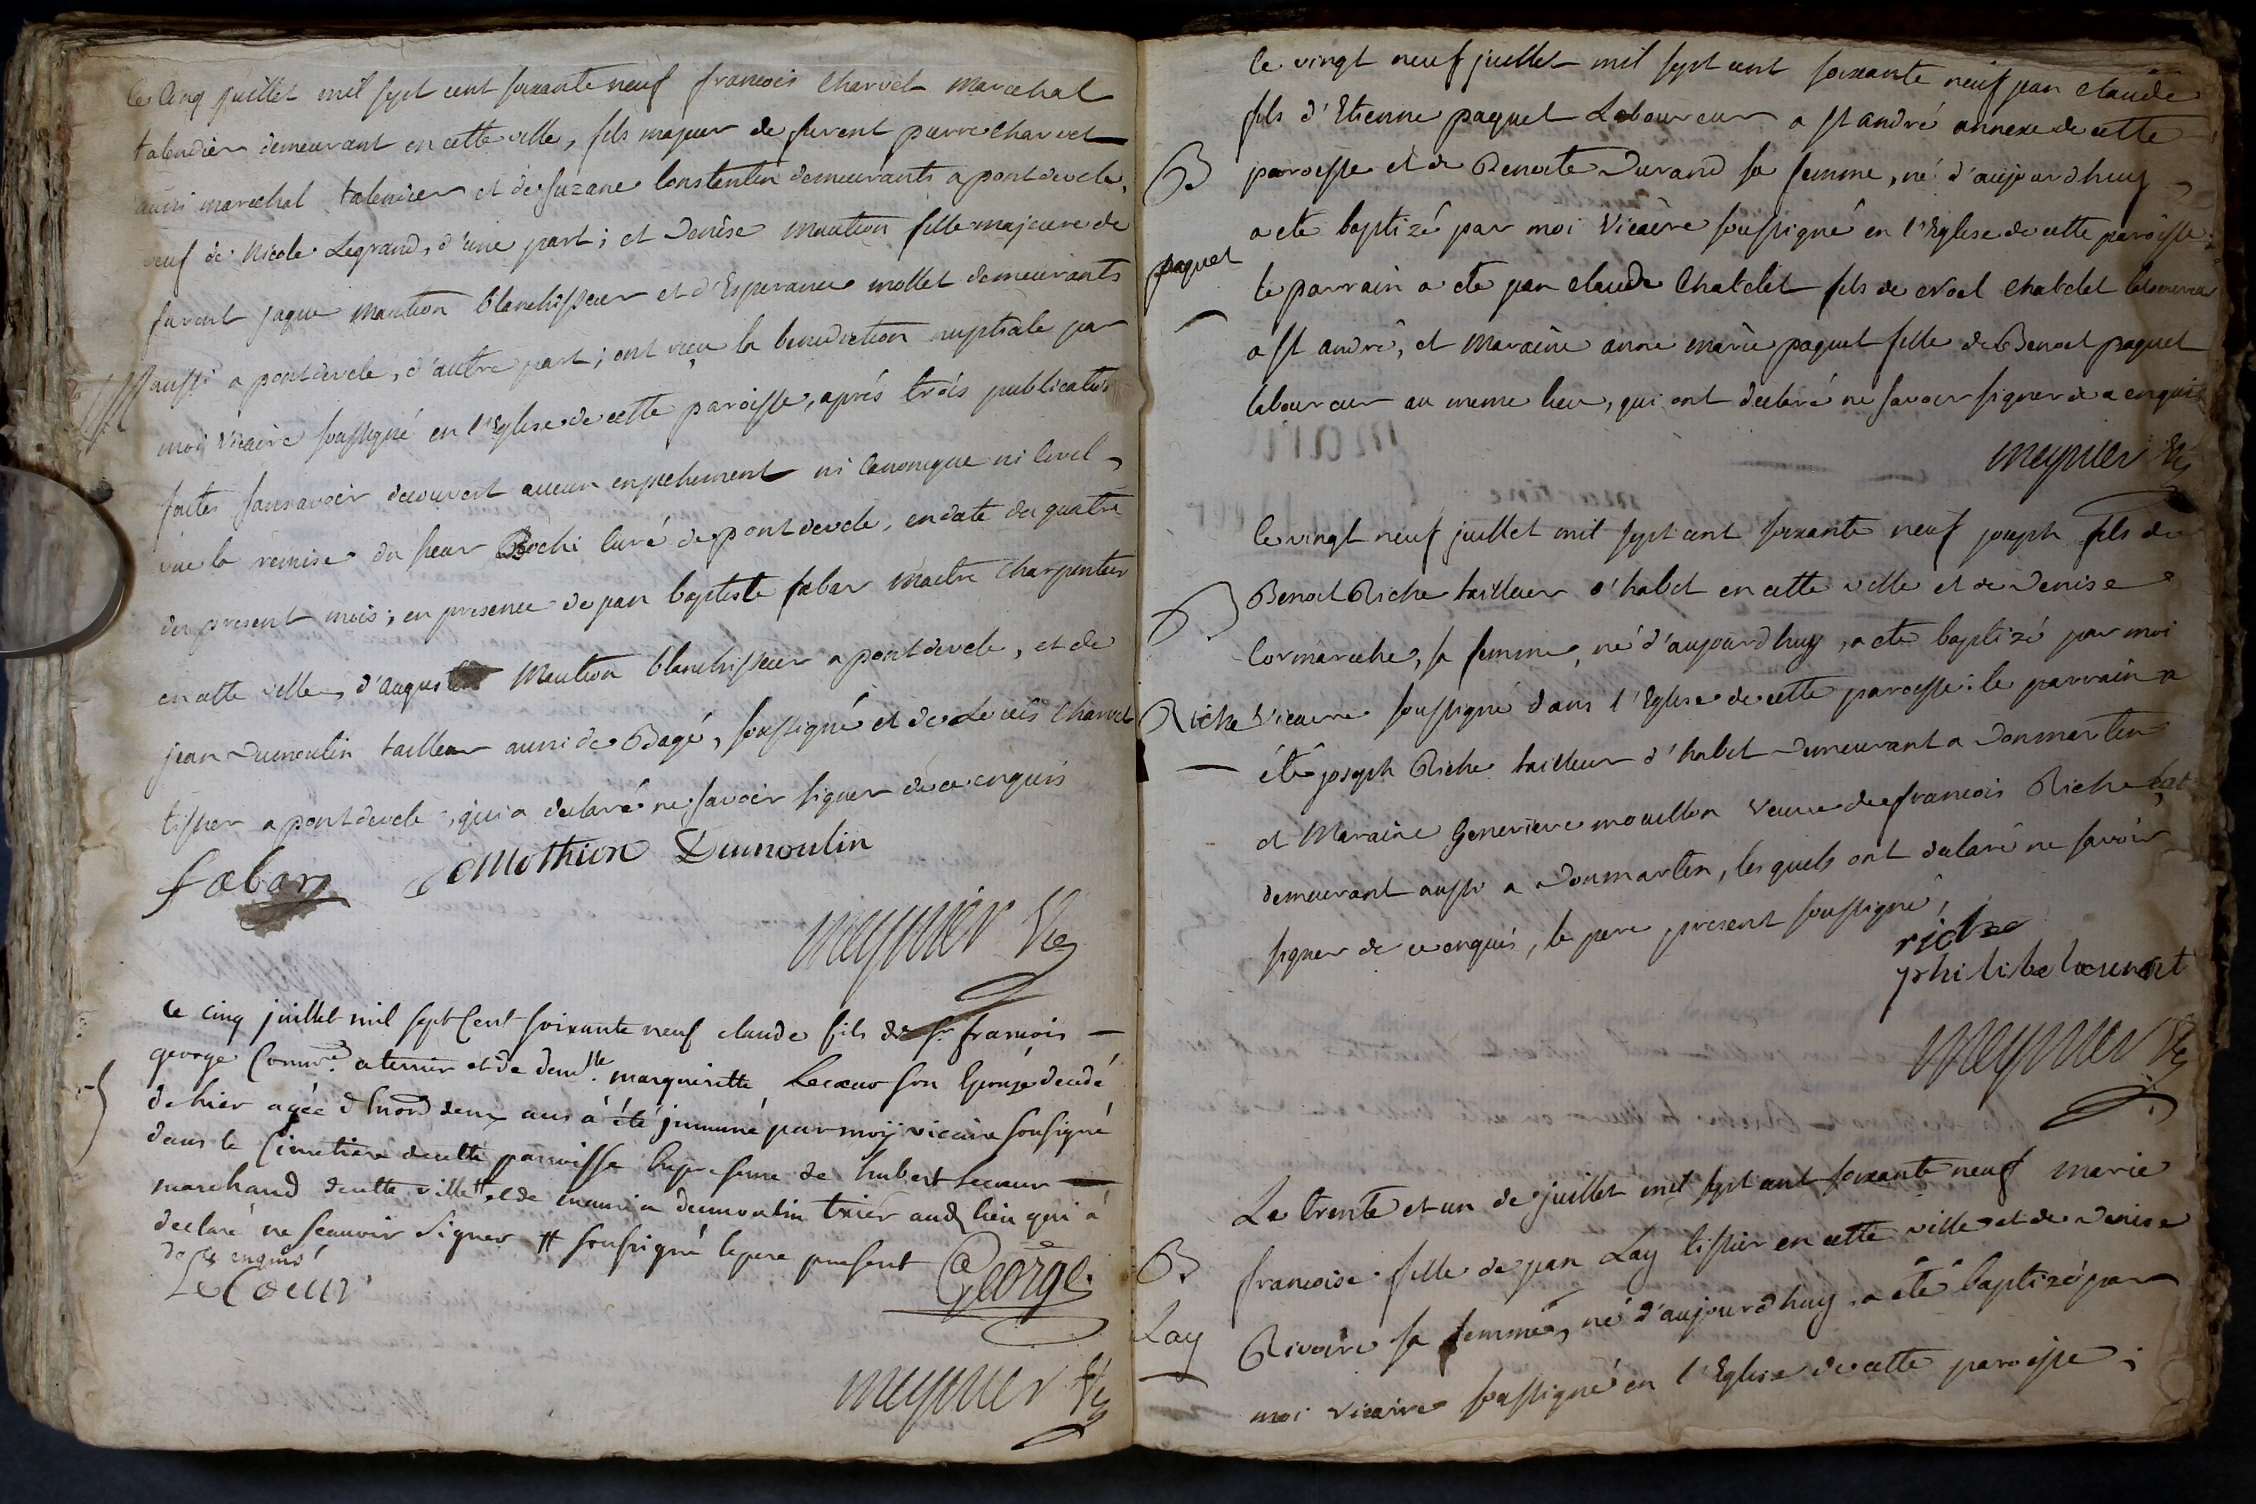 Le Cinq juillet mil sept cent soixante neuf francois Charvet marechal
talendier demeurant en cette ville, fils majeur de furent pierre Charvet
aussi marechal talendier et de suzane Constentin demeurants a pontdevele,
veuf de Nicole Legrand, d'une part; et Denise Mantion fille majeure de
furent jaque Mantion blanchisseur et d'Esperance mollet demeurants
aussi a pontdevele, d'autre part; ont reçu la benediction nuptiale par
moi Vicaire soussigné en l'Eglise de cette paroisse, aprés trois publications
faites sans avoir decouvert aucun enpechement ni Canonique ni Civil,
vue la remise du sieur Bochi Curé de pontdevele, en date du quatre
du present mois; en presence de jean baptiste fabar Maitre Charpentier
en cette ville, d'augustin Mantion blanchisseur a pontdevele, et de
jean Dumoulin tailleur aussi de Bagé, soussigné et de Louis Charvet
tissier a pontdevele, qui a declaré ne savoir signer de ce enquis
fabar Mothion Dumoulin
meynier Vic
Le cinq juillet mil sept Cent soixante neuf claude fils de Sr. francois
george Comre. a terrier et de demlle. margueritte Lecoeur son Epouse decedé
de hier agée d'environ deux ans á été jnhumé par moij vicaire sousigné
dans le Cimetiere de cette parroisse En presence de hubert Lecoeur
marchand de cette ville # et de dumoulin tixier aud lieu qui á
declaré ne scauoir Signer # sousigné le pere present
de ce enquis
LeCoeur George
meynier Vic
le vingt neuf juillet mil sept cent soixante neuf jean Claude
fils d'Etienne paquet Laboureur a st andré annexe de cette
B paroisse et de Benoite Durand sa femme, né d'aujourdhuy
a été baptizé par moi Vicaire soussigné en l'Eglise de cette paroisse;
paquet
le parrain a été jean claude Chatelet fils de Noel Chatelet laboureur
a st andré, et Maraine anne marie paquet fille de Benoit paquet
laboureur au meme lieu, qui ont declaré ne savoir signer de ce enquis
meynier Vic
le vingt neuf juillet mil sept cent soixante neuf joseph fils de
B Benoit Riche tailleur d'habit en cette ville et de Denise
Cormareche, sa femme, né d'aujourdhuy, a été baptizé par moi
Riche Vicaire soussigné dans l'Eglise de cette paroisse: le parrain a
été joseph Riche tailleur d'habit demeurant a Donmartin
et Maraine Genevieve mouillon Veuve de francois Riche
demeurant aussi a Donmartin, lesquels ont declaré ne savoir
signer de ce enquis, le pere present soussigné,
riche
meynier Vic
Le trente et un de juillet mil sept cent soixante neuf marie
B francoise fille de jean Lay tissier en cette ville et de Denise
Lay Rivoire sa femme, né d'aujourdhuy, a été baptizé par
moi Vicaire soussigné en l'Eglise de cette paroisse;